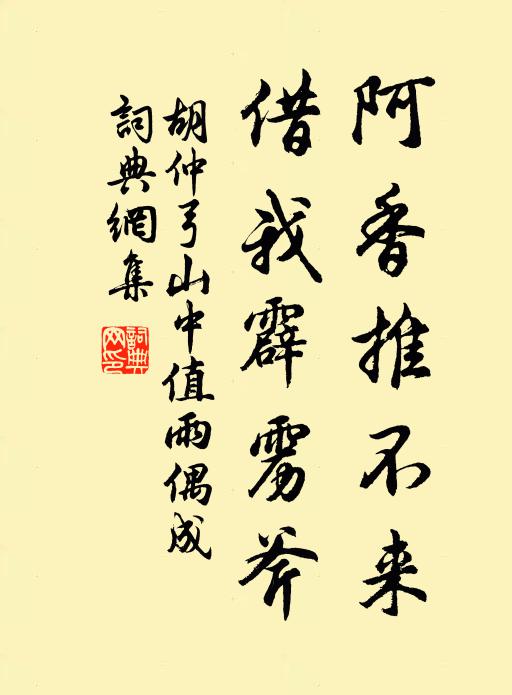 阿香推不来
借我霹雳斧
胡仲弓山中值雨偶成
詞典網集
詞典
网印